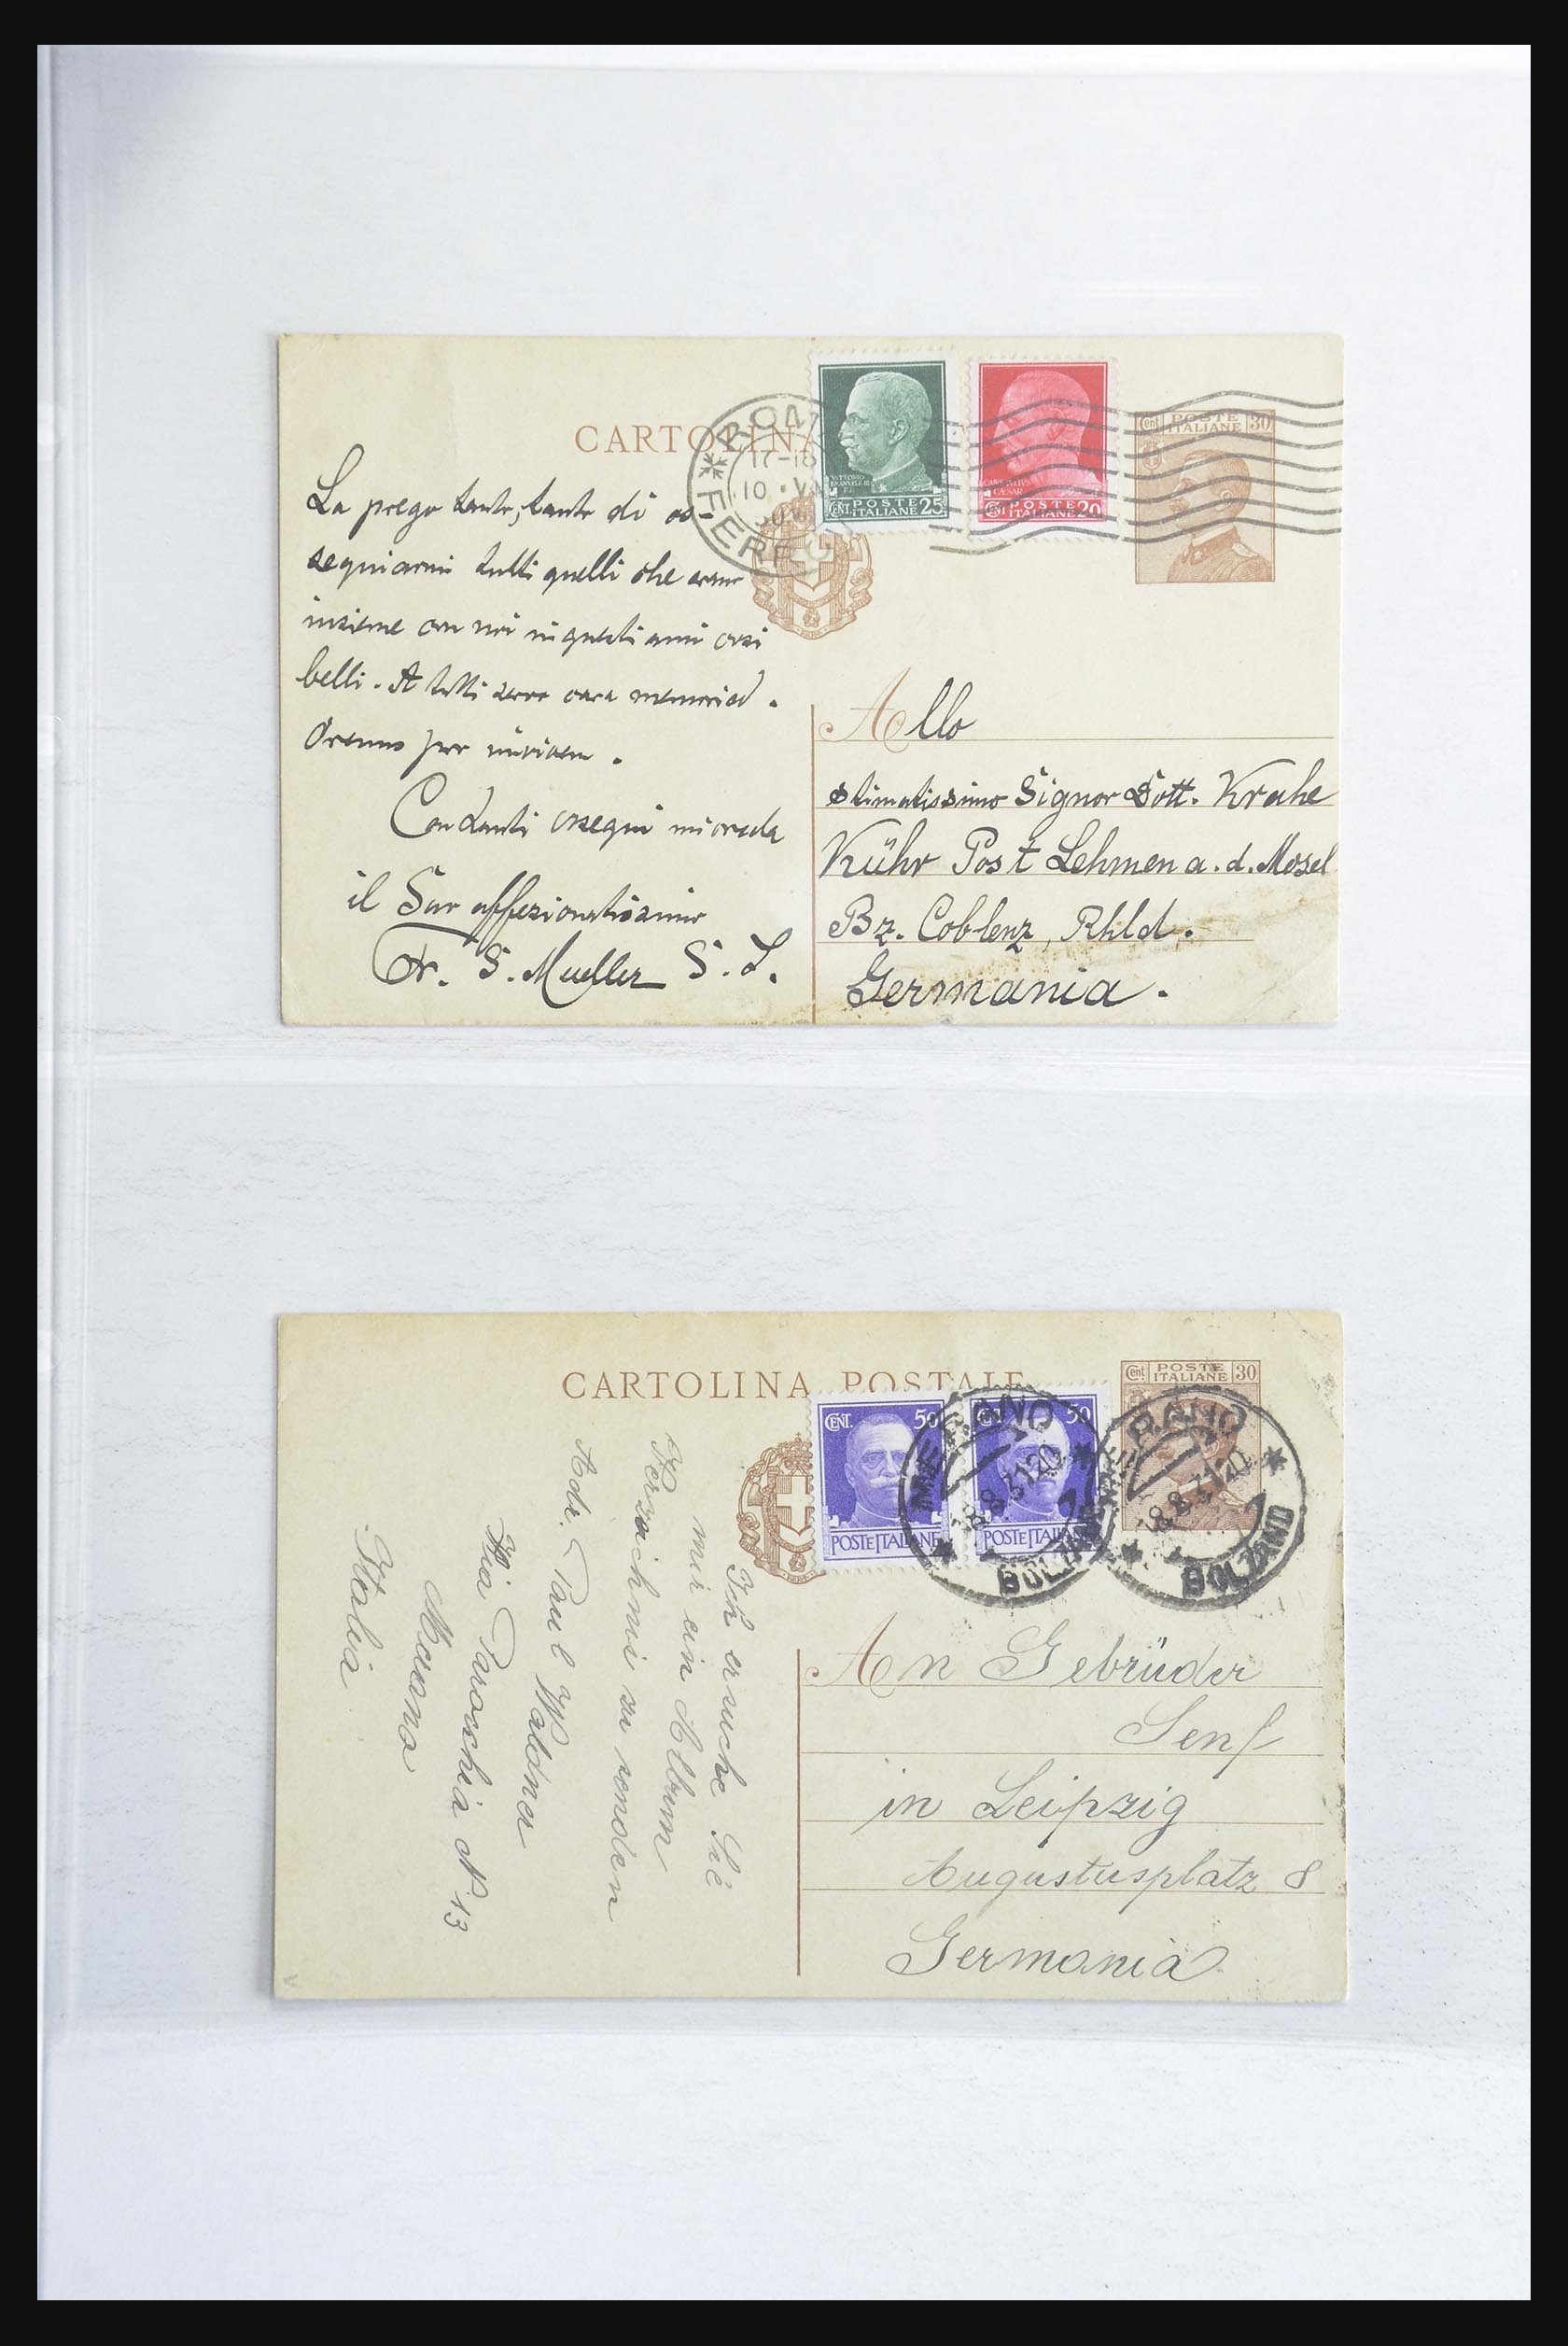 CARTOLINA
ROM
17-18
10 · V
FERR
VITTORIO
EMANUELE III
POSTE
CENT. ITALIANE 25
CAIVS IVLIVS
CAESAR
POSTE
CENT ITALIANE 20
Cent POSTE 30
ITALIANE
La prego tanto, tanto di os-
sequiarmi tutti quelli che erano
insieme con noi in questi anni così
belli. A tutti servo cara memoria.
Oremus pro invicem.
Con tanti ossequi mi creda
il Suo affezionatissimo
Fr. S. Mueller S. J.
Allo
stimatissimo Signor Dott. Krahe
Kühr Post Lehmen a. d. Mosel
Bz. Coblenz, Rhld.
Germania.
CARTOLINA POSTALE
CENT. 50
POSTE ITALIANE
CENT. 50
POSTE ITALIANE
Cent. POSTE 30
ITALIANE
MERANO
8.8.31 20
BOLZANO
MERANO
8.8.31 20
BOLZANO
Ich ersuche Sie
mir ein Album
Verzeichnis zu senden
Adr. Paul Waldner
Via Parocchia No 13
Merano
Italia
An Gebrüder
Senf
in Leipzig
Augustusplatz 8
Germania